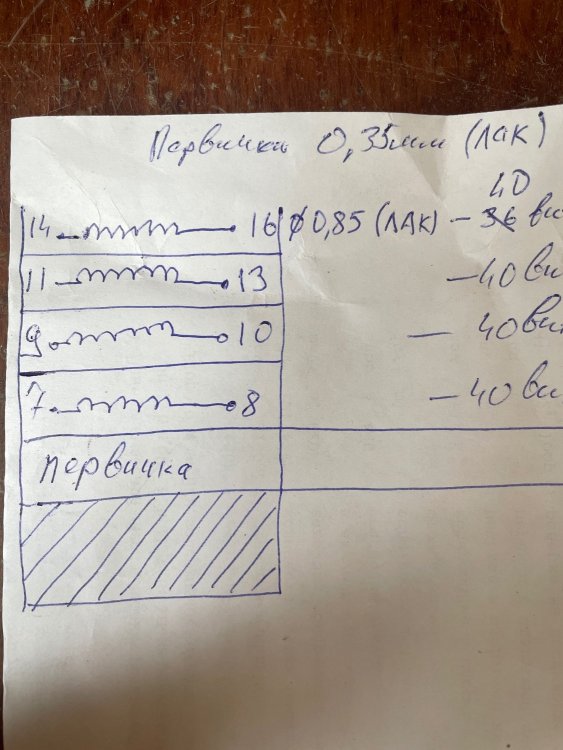 Первичка 0,35мм (ЛАК)
40
14 16 ϕ0,85 (ЛАК) – 36 ви
11 13 – 40 ви
9 10 – 40 ви
7 8 – 40 ви
первичка